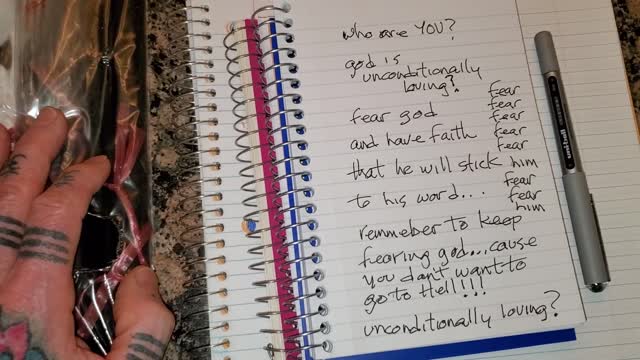 who are YOU?
god is
unconditionally
loving?
fear god
and have faith
that he will stick
to his word...
fear
fear
fear
fear
fear
him
fear
fear
him
remmeber to keep
fearing god...cause
you don't want to
go to Hell!!!
unconditionally loving?
uni-ball